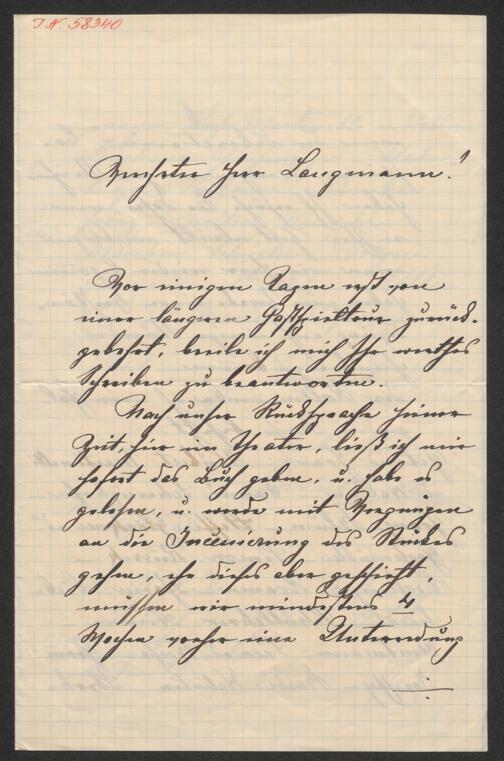 J.N. 58340
Verehrter Herr Langmann!
Vor einigen Tagen erst von
einer längeren Gastspieltour zurück-
gekehrt, beeile ich mich Ihr werthes
Schreiben zu beantworten.
Nach unser Rücksprache seiner
Zeit, hier im Theater, ließ ich mir
sofort das Buch geben, u. habe es
gelesen, u. werde mit Vergnügen
an die Inscenierung des Stückes
gehen, ehe dieses aber geschieht,
müssen wir mindestens 4
Wochen vorher eine Unterredung